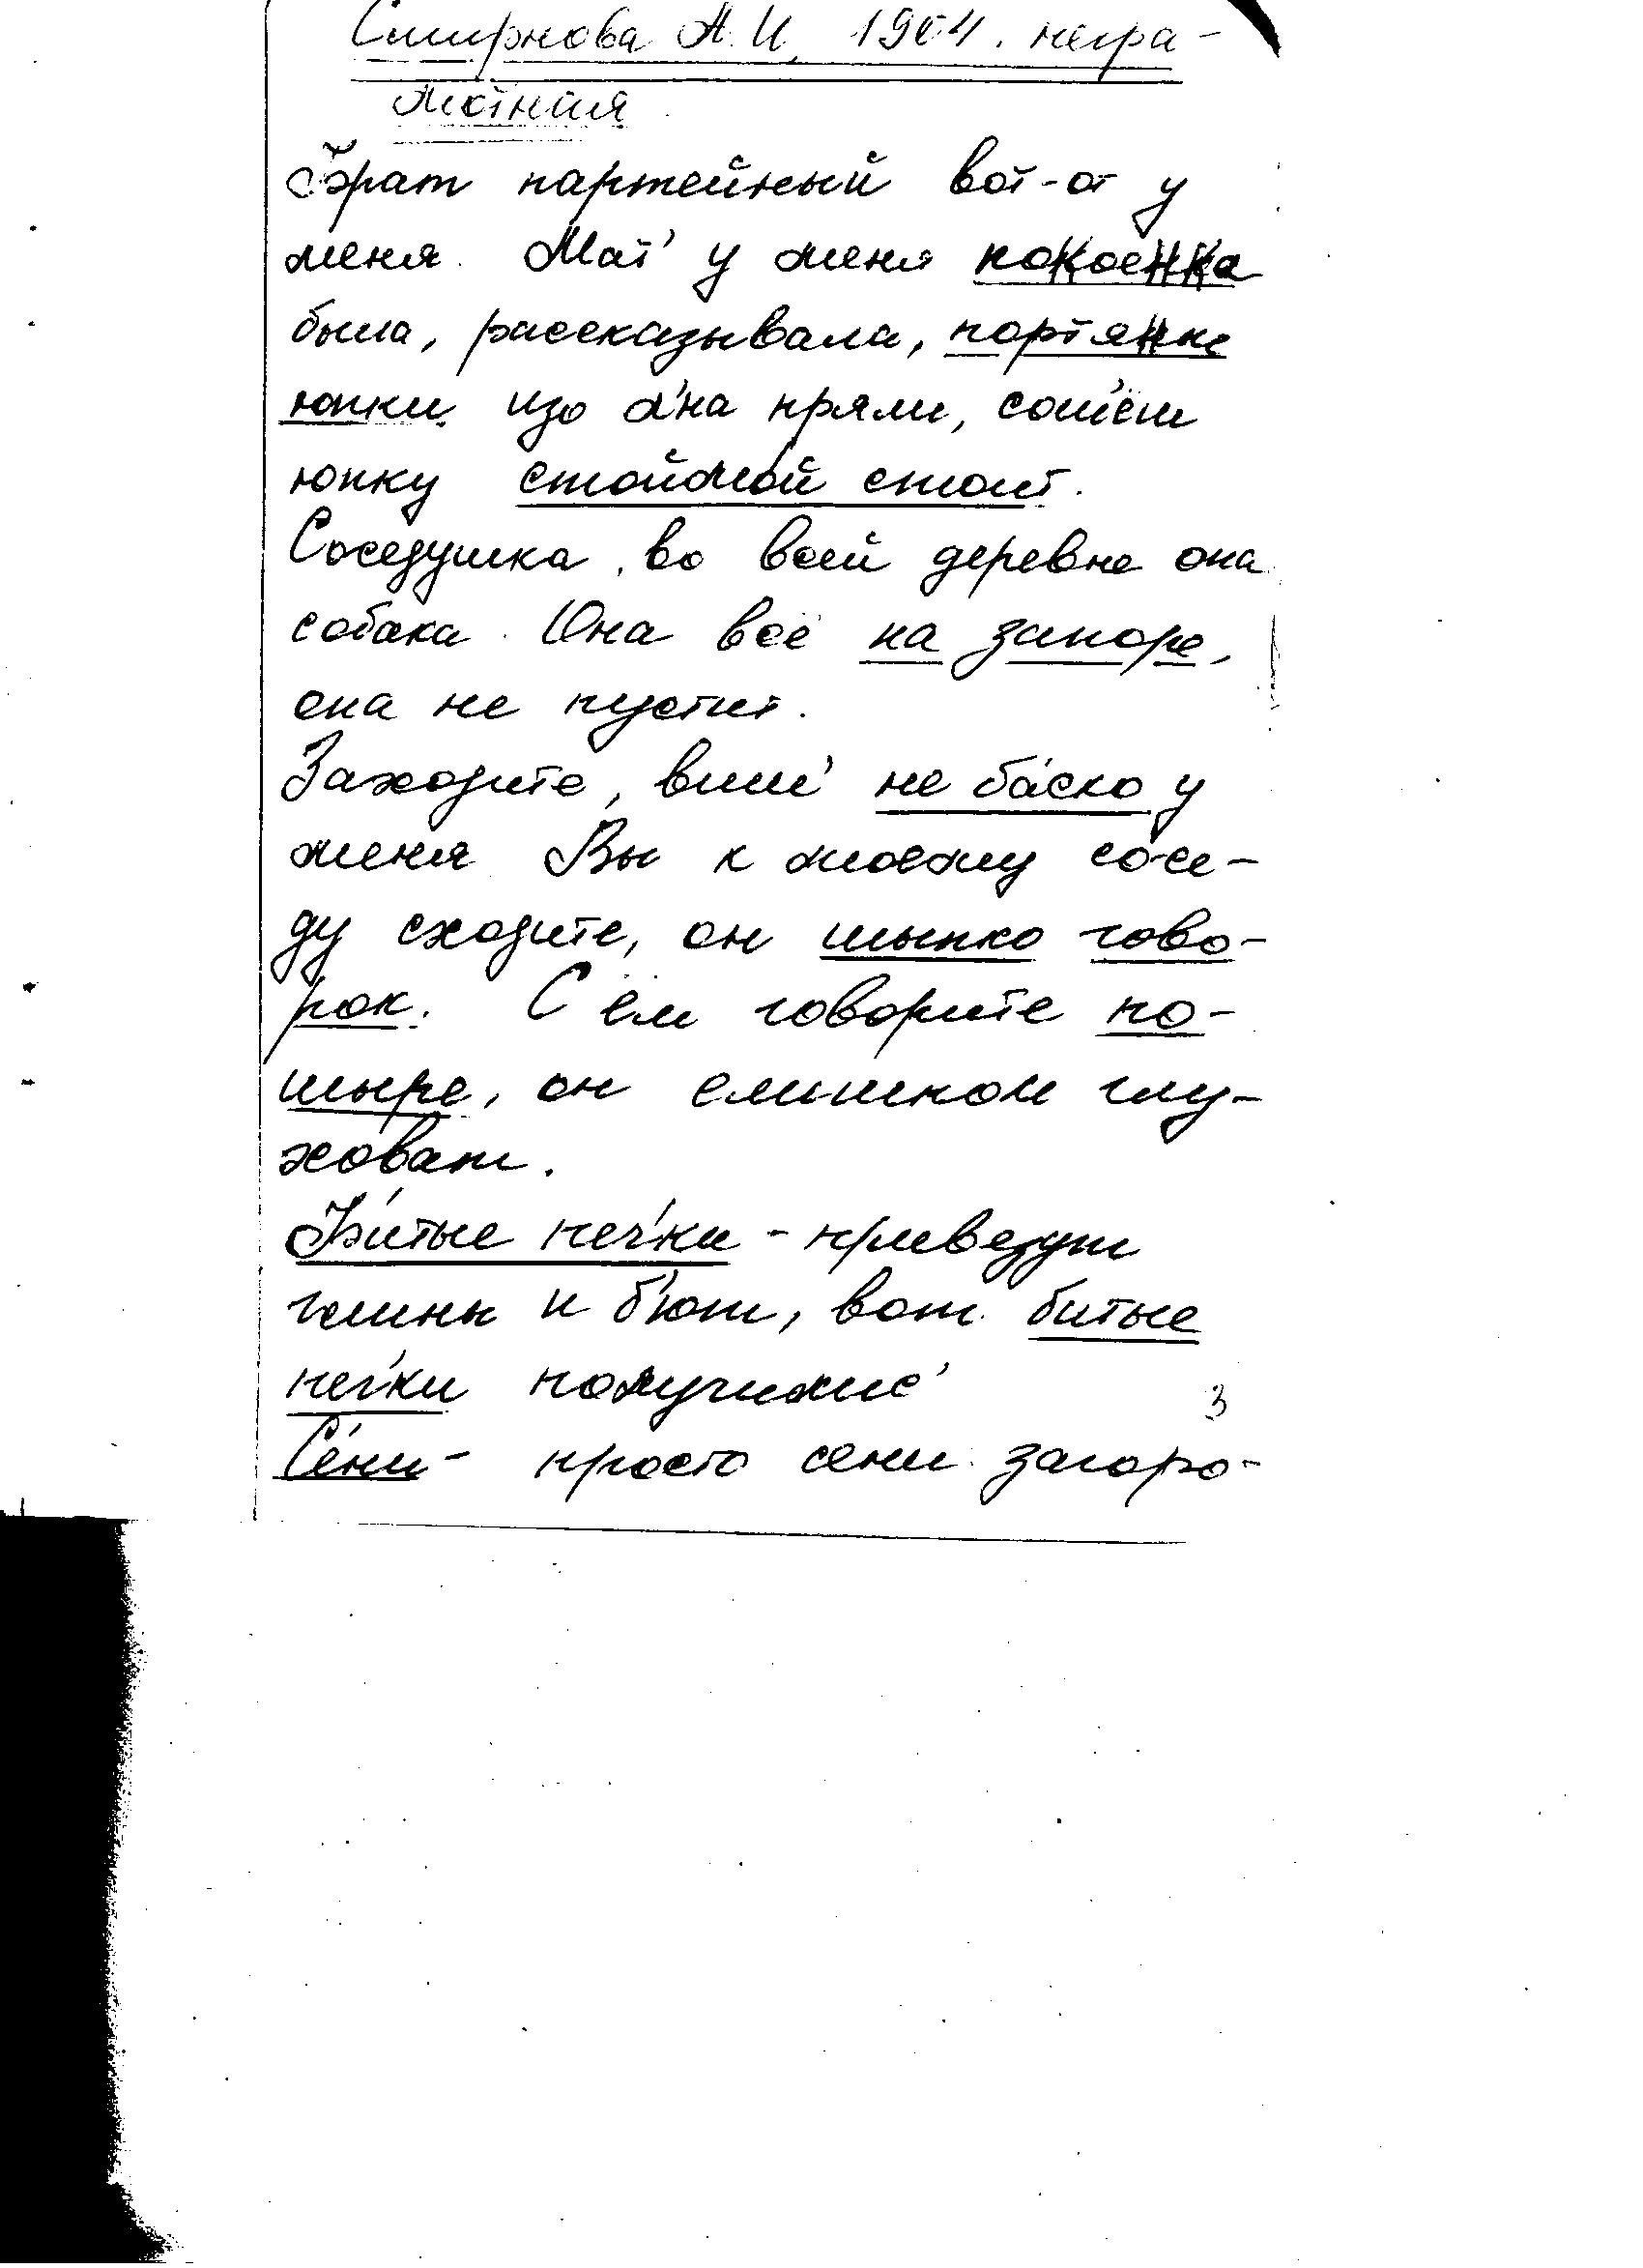 Смирнова А.И. 1904. негра-
мотная
Брат партейный вот-от у
меня. Мат' у меня покоенка
была, рассказывала, портяные
юпки изо л'на пряли, сош'ёш
юпку стоймой стоит.
Соседушка, во всей деревне она
собака. Она всё на запоре,
она не пустит.
Заходите, виш' не ба́ско у
меня Вы к моему сосе-
ду сходите, он шыпко гово-
рок. С ём говорите по-
шыре, он слишком глу-
ховат.
Би́тые печ'ки - привезут
глины и б'ют, вот битые
печ'ки получилис'
Се́ни - просто сени загоро-
3